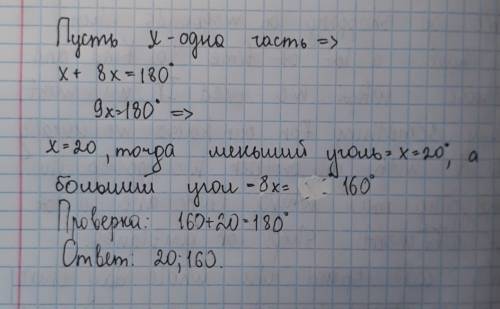 Пусть x - одна часть =>
x + 8x = 180°
9x = 180° =>
x = 20, тогда меньший уголь = x = 20°, а
больший угол = 8x = 160°
Проверка: 160 + 20 = 180°
Ответ: 20; 160.